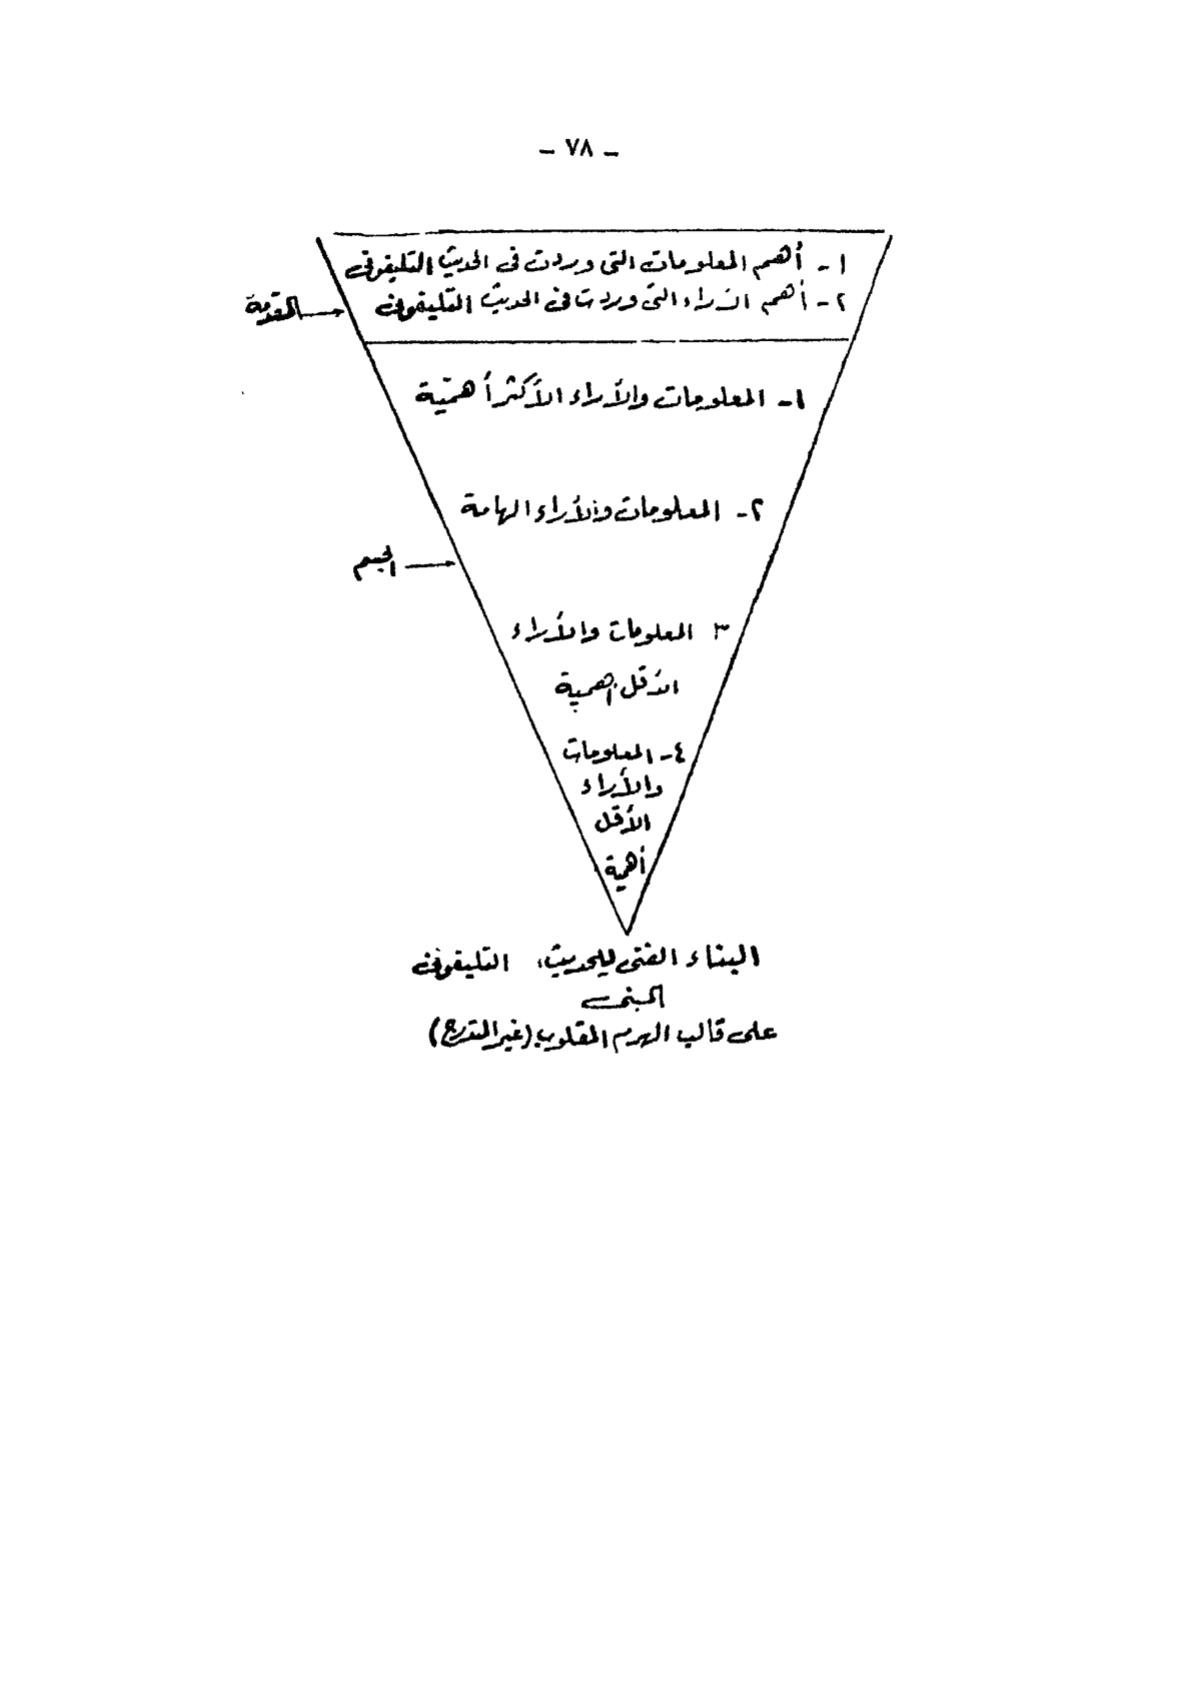 - ٧٨ -
١- أهم المعلومات التى وردت فى الحديث التليفونى
٢- أهم الآراء التى وردت فى الحديث التليفونى
المقدمة
١- المعلومات والأراء الأكثر أهمية
٢- المعلومات والأراء الهامة
الجسم
٣ المعلومات والأراء
الأقل أهمية
٤- المعلومات
والأراء
الأقل
أهمية
البناء الفنى للحديث التليفونى
المبنى
على قالب الهرم المقلوب (غير المتدرج)